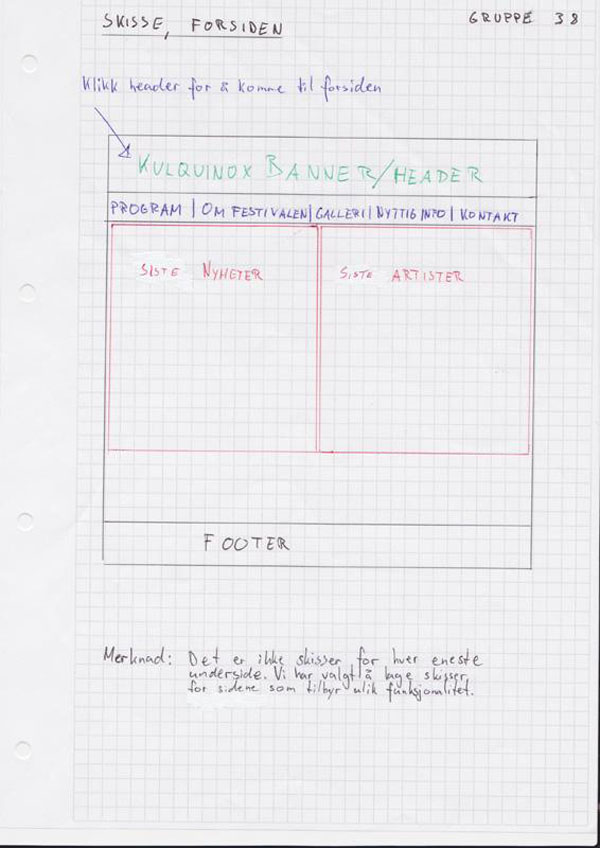 SKISSE, FORSIDEN
GRUPPE 38
Klikk header for å komme til forsiden
KULQUINOX BANNER/HEADER
PROGRAM | OM FESTIVALEN | GALLERI | NYTTIG INFO | KONTAKT
SISTE NYHETER
SISTE ARTISTER
FOOTER
Merknad: Det er ikke skisser for hver eneste
underside. Vi har valgt å lage skisser
for sidene som tilbyr ulik funksjonalitet.